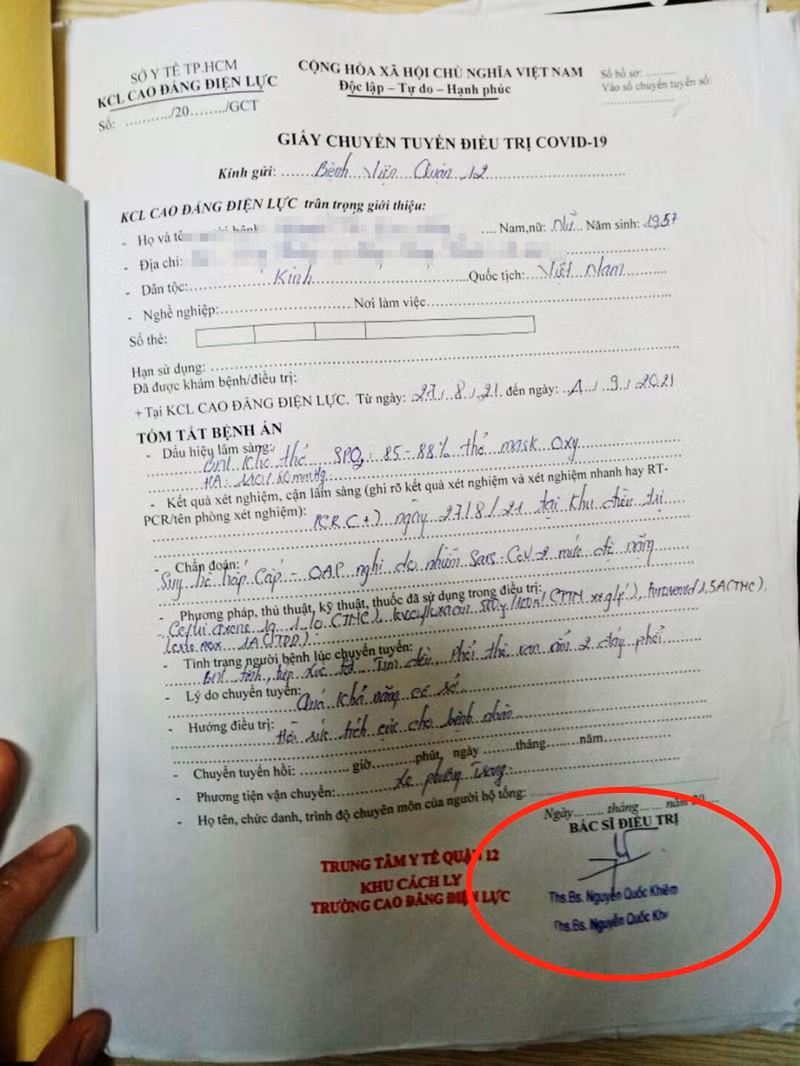 SỞ Y TẾ TP.HCM
KCL CAO ĐẲNG ĐIỆN LỰC
Số: ........../20......../GCT
CỘNG HÒA XÃ HỘI CHỦ NGHĨA VIỆT NAM
Độc lập – Tự do – Hạnh phúc
Số hồ sơ: .........
Vào sổ chuyển tuyến số:
GIẤY CHUYỂN TUYẾN ĐIỀU TRỊ COVID-19
Kính gửi: Bệnh viện Quận 12
KCL CAO ĐẲNG ĐIỆN LỰC trân trọng giới thiệu:
- Họ và tên Nam,nữ: Nữ Năm sinh: 1957
- Địa chỉ:
- Dân tộc: Kinh Quốc tịch: Việt Nam
- Nghề nghiệp: Nơi làm việc
Số thẻ:
Hạn sử dụng:
Đã được khám bệnh/điều trị:
+ Tại KCL CAO ĐẲNG ĐIỆN LỰC. Từ ngày: 27/8/21 đến ngày: 1/9/2021
TÓM TẮT BỆNH ÁN
- Dấu hiệu lâm sàng:
BN khó thở SPO2: 85-88% thở mask oxy
HA: mmHg
- Kết quả xét nghiệm, cận lâm sàng (ghi rõ kết quả xét nghiệm và xét nghiệm nhanh hay RT-
PCR/tên phòng xét nghiệm): PCR (+) ngày 27/8/21 tại khu điều trị
- Chẩn đoán:
Suy hô hấp cấp - nghi do nhiễm Sars-CoV-2 mức độ nặng
- Phương pháp, thủ thuật, kỹ thuật, thuốc đã sử dụng trong điều trị:
Ceftriaxone 1g (TMC),
- Tình trạng người bệnh lúc chuyển tuyến:
BN tỉnh, tiếp xúc tốt Tim đều, Phổi thô ran ẩm 2 đáy phổi
- Lý do chuyển tuyến: Quá khả năng cơ sở
- Hướng điều trị: Hồi sức tích cực cho bệnh nhân
- Chuyển tuyến hồi: ........... giờ..........phút, ngày .......tháng........năm.........
- Phương tiện vận chuyển: Xe phương Trang
- Họ tên, chức danh, trình độ chuyên môn của người hộ tống:
Ngày........ tháng ...... năm 20....
BÁC SĨ ĐIỀU TRỊ
TRUNG TÂM Y TẾ QUẬN 12
KHU CÁCH LY
TRƯỜNG CAO ĐẲNG ĐIỆN LỰC
Ths.Bs. Nguyễn Quốc Khiêm
Ths.Bs. Nguyễn Quốc Khi